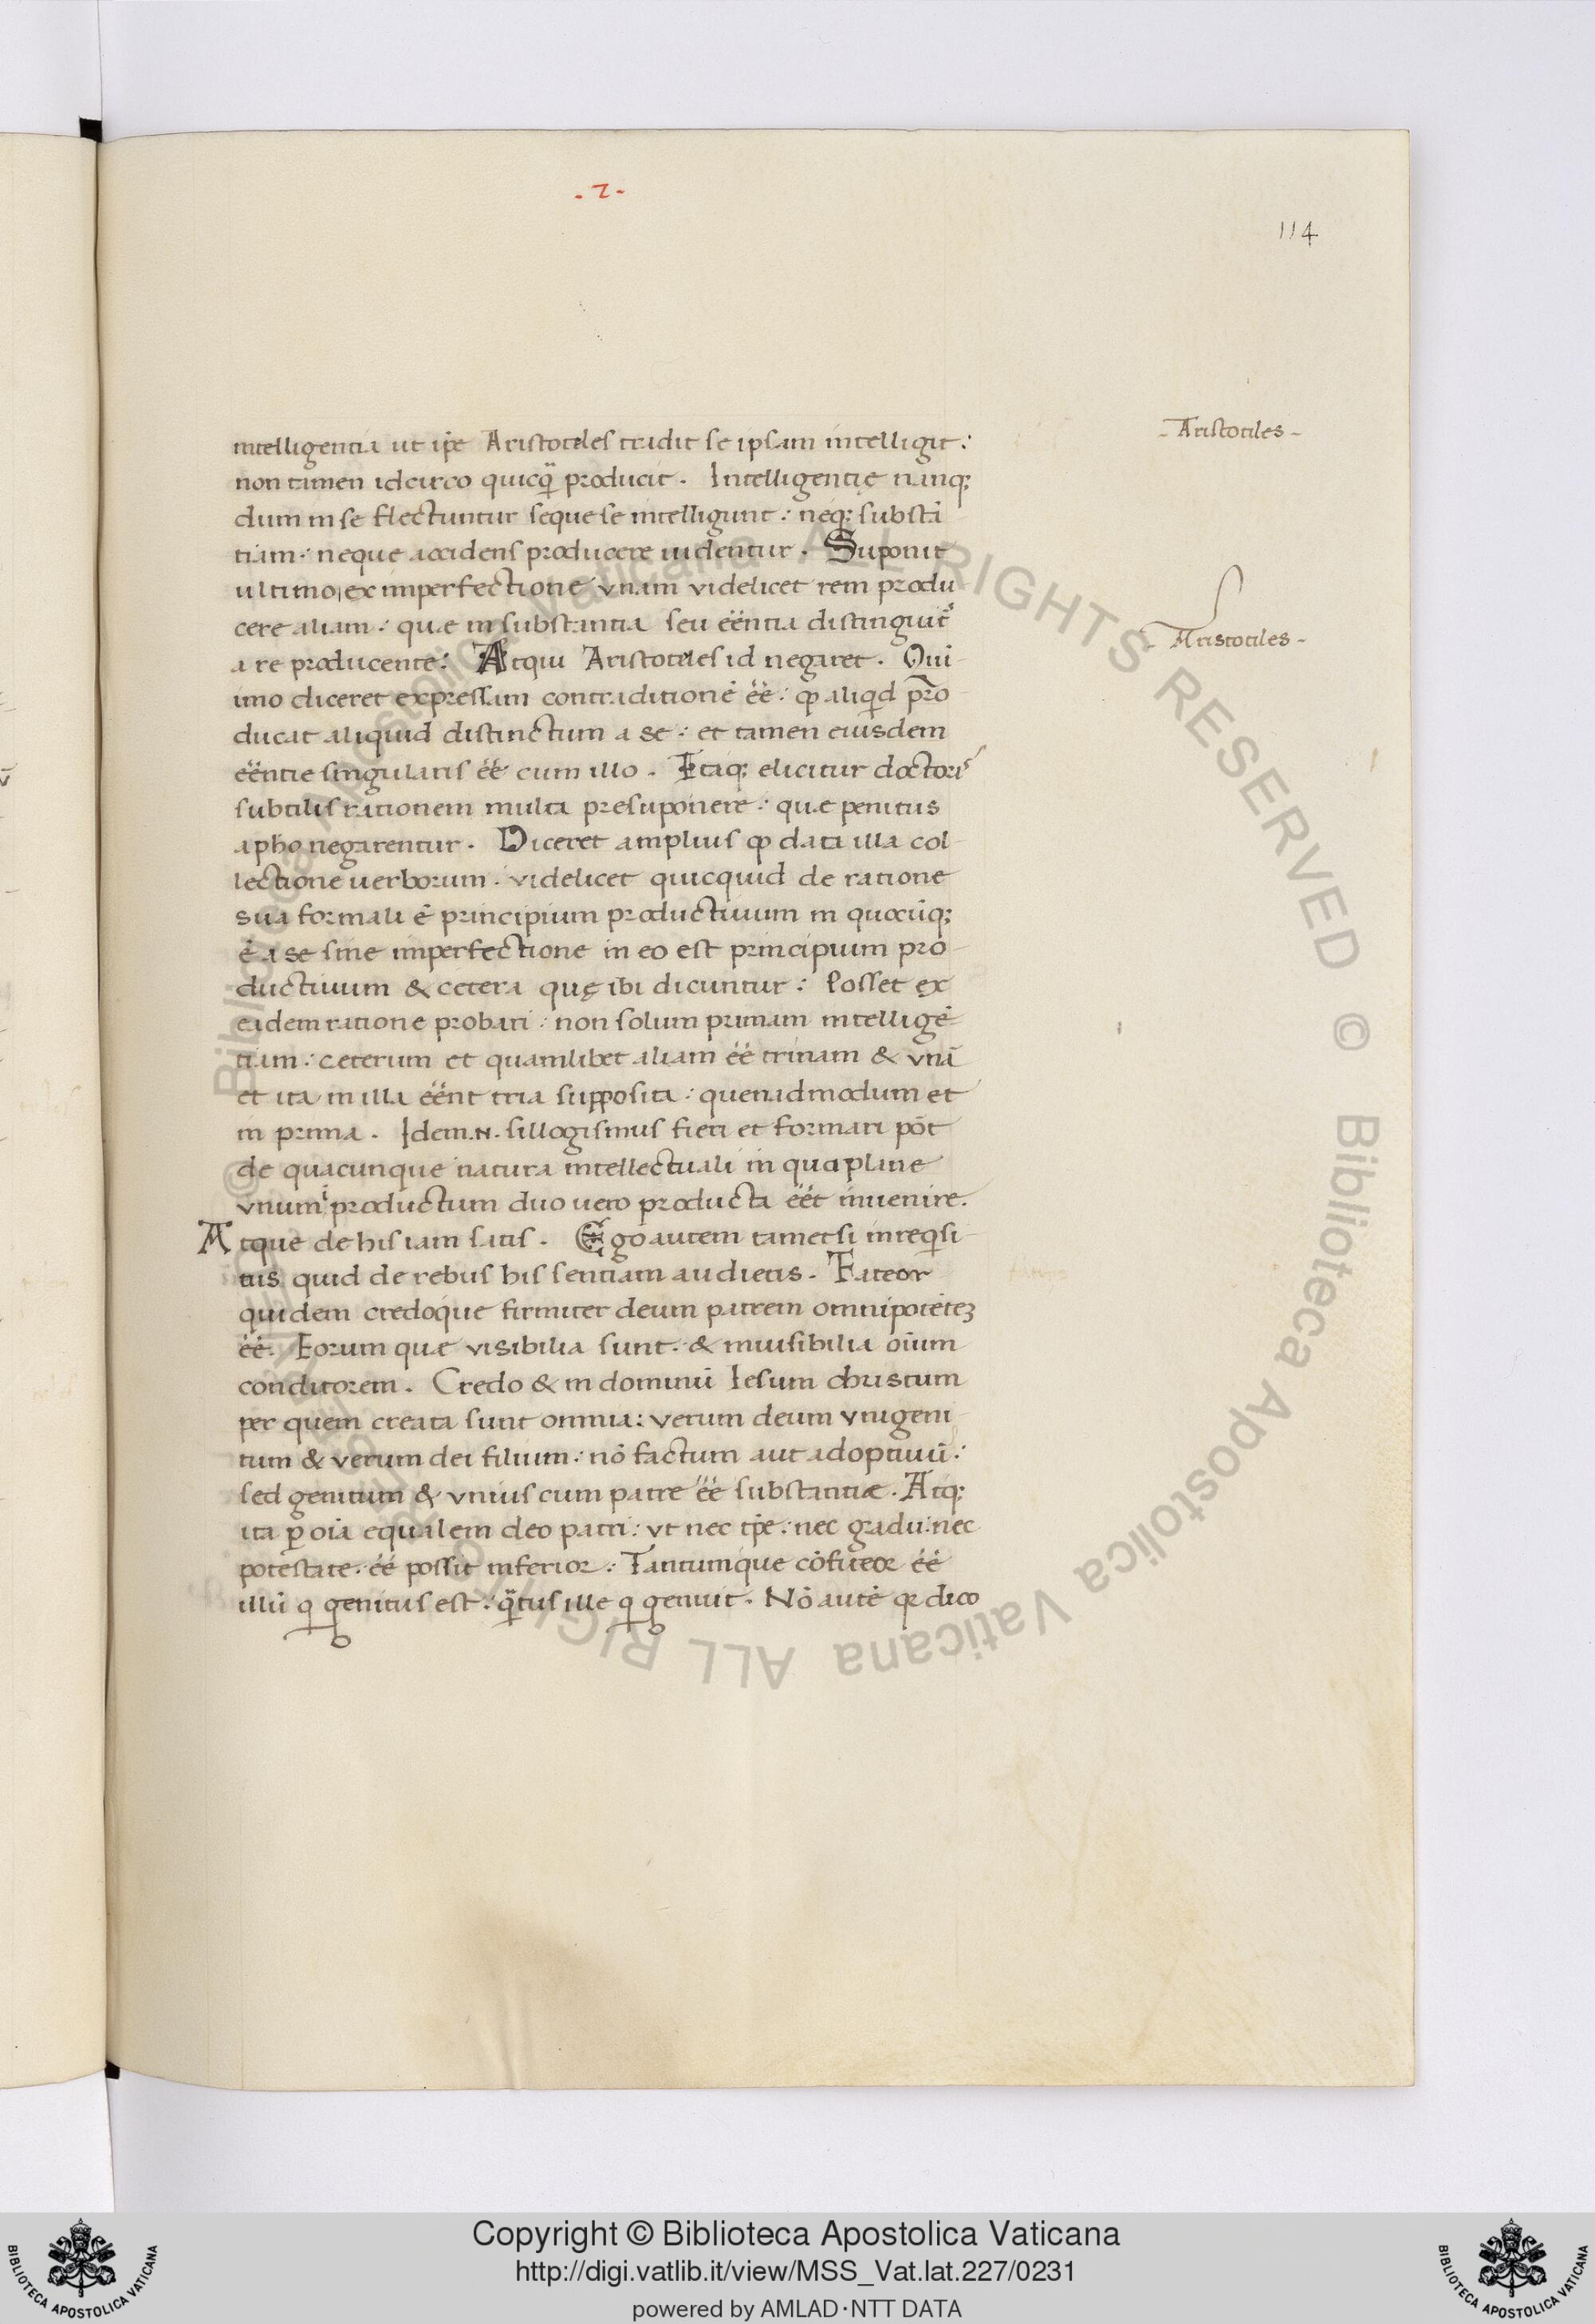 .2.
114
intelligentia ut ip̄e Aristoteles tradit se ipsam intelligit:
-Aristotiles-
non tamen idcirco quicq̄ producit. Intelligentię nanq;
dum in se flectuntur seque se intelligunt: neq; substā
tiam: neque accidens producere uidentur. Suponit
ultimo, ex imperfectione vnam videlicet rem produ
cere aliam: quae in substantia seu ēēntia distinguit᷑
-Aristotiles-
a re producente. Atqui Aristoteles id negaret. Qui-
imo diceret expressam contraditionē ēē: ꝙ aliqd pro-
ducat aliquid distinctum a se: et tamen eiusdem
ēēntie singularis ēē cum illo. Itaq; elicitur doctoris
subtilis rationem multa presuponere: quae penitus
a pħo negarentur. Diceret amplius ꝙ data illa col-
lectione uerborum. videlicet quicquid de ratione
sua formali ē principium productiuum in quocūq;
ē a se sine imperfectione in eo est principium pro-
ductiuum & cetera quę ibi dicuntur: Posset ex
eadem ratione probari: non solum primam intelligē-
tiam: ceterum et quamlibet aliam ēē trinam & vnā
et ita in illa ēēnt tria supposita: quenadmodum et
in prima. Idem .N. sillogismus fieri et formari pōt
de quacunque natura intellectuali in qua plane
vnum productum duo uero producta ēēt inuenire.
Atque de his iam satis. Ego autem tametsi inreqsi-
tus quid de rebus his sentiam audietis. Fateor
quidem credoque firmiter deum patrem omnipotēteꝫ
ēē. Eorum quae visibilia sunt. & inuisibilia oīum
conditorem. Credo & in dominū Iesum christum
per quem creata sunt omnia: verum deum vnigeni-
tum & verum dei filium: nō factum aut adoptiuū:
sed genitum & vnius cum patre ēē substantiae. Atq;
ita ꝑ oīa equalem deo patri: vt nec tp̄e: nec gradu: nec
potestate. ēē possit inferior: Tantumque cōfiteor ēē
illū q genitus est: q̄tus ille q genuit. Nō autē qr dico
Copyright © Biblioteca Apostolica Vaticana
http://digi.vatlib.it/view/MSS_Vat.lat.227/0231
powered by AMLAD·NTT DATA
BIBLIOTECA APOSTOLICA VATICANA
BIBLIOTECA APOSTOLICA VATICANA
© Biblioteca Apostolica Vaticana ALL RIGHTS RESERVED © Biblioteca Apostolica Vaticana ALL RIGHTS RESERVED